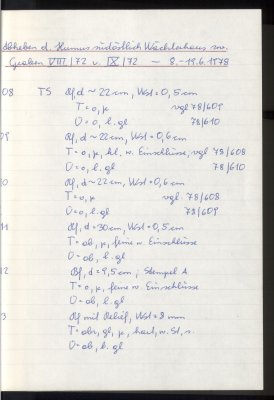 Abheben d. Humus südöstlich Wächterhaus sw.
Graben VIII/72 u. IX/72 ~ 8.-19.6.1978
08 TS Rf, d ~ 22 cm, Wst = 0,5 cm
T = o, µ vgl 78/609
O = o, l. gl 78/610
09 Rf, d ~ 22 cm, Wst = 0,6 cm
T = o, µ, kl. w. Einschlüsse, vgl 78/608
O = o, l. gl 78/610
10 Rf, d ~ 22 cm, Wst = 0,6 cm
T = o, µ vgl 78/608
O = o, l. gl 78/609
11 Rf, d = 30 cm, Wst = 0,5 cm
T = ob, µ, feine w. Einschlüsse
O = ob, l. gl
12 Bf, d = 9,5 cm, Stempel A
T = o, µ, feine w. Einschlüsse
O = ob, l. gl
3 Rf mit Relief, Wst = 8 mm
T = obr, gl, µ, hart, w. St, s.
O = ob, l. gl